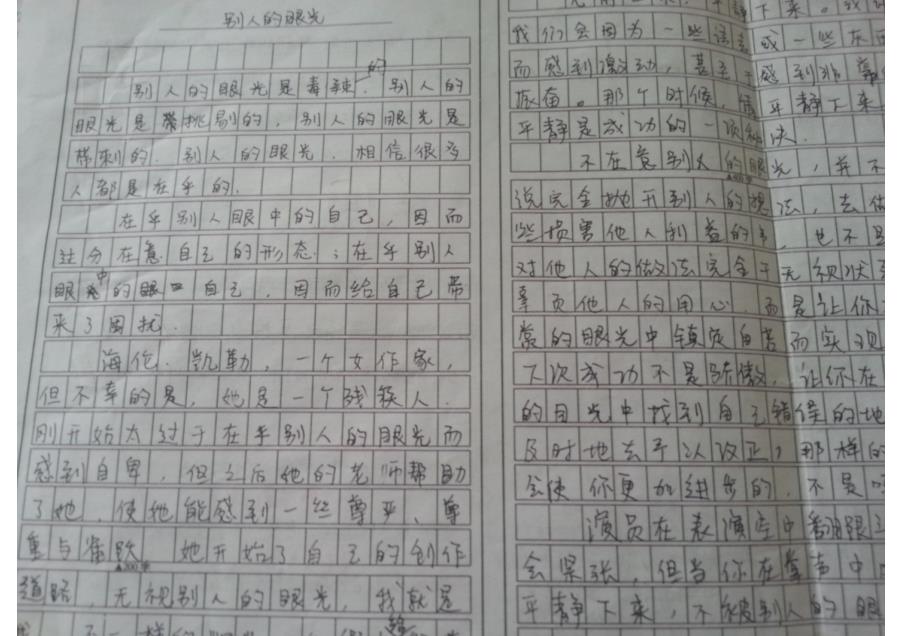 别人的眼光
别人的眼光是毒辣的，别人的
眼光是挑剔的，别人的眼光是
带刺的，别人的眼光，相信很多
人都是在乎的，
在乎别人眼中的自己，因而
过分在意自己的形态；在乎别人
眼中的自己，因而给自己带
来了困扰．
海伦·凯勒，一个女作家，
但不幸的是，她是一个残疾人．
刚开始太过于在乎别人的眼光而
感到自卑，但之后她的老师帮助
了她，使她能感到一丝尊严、尊
重与 她开始了自己的创作
▲200字
道路，无视别人的眼光，我就是
下来。我
我们会因为一些 或一些东
而感到激动，甚至于感到非
振奋。那个时候，平静下来
平静是成功的一项秘诀．
不在意别人的眼光，并不
▲400字
说完全抛开别人的想法，去做
些损害他人利益的事，也不是
对他人的做法完全于无视状
辜负他人的用心，而是让你
赏的眼光中镇定自若而实现
下次成功不是骄傲，让你在
的目光中找到自己错误的地
及时地去予以改正，那样的
会使你更加进步的，不是
演员在表演空中翻跟
会紧张，但当你在掌声中
平静下来，不被别人的眼